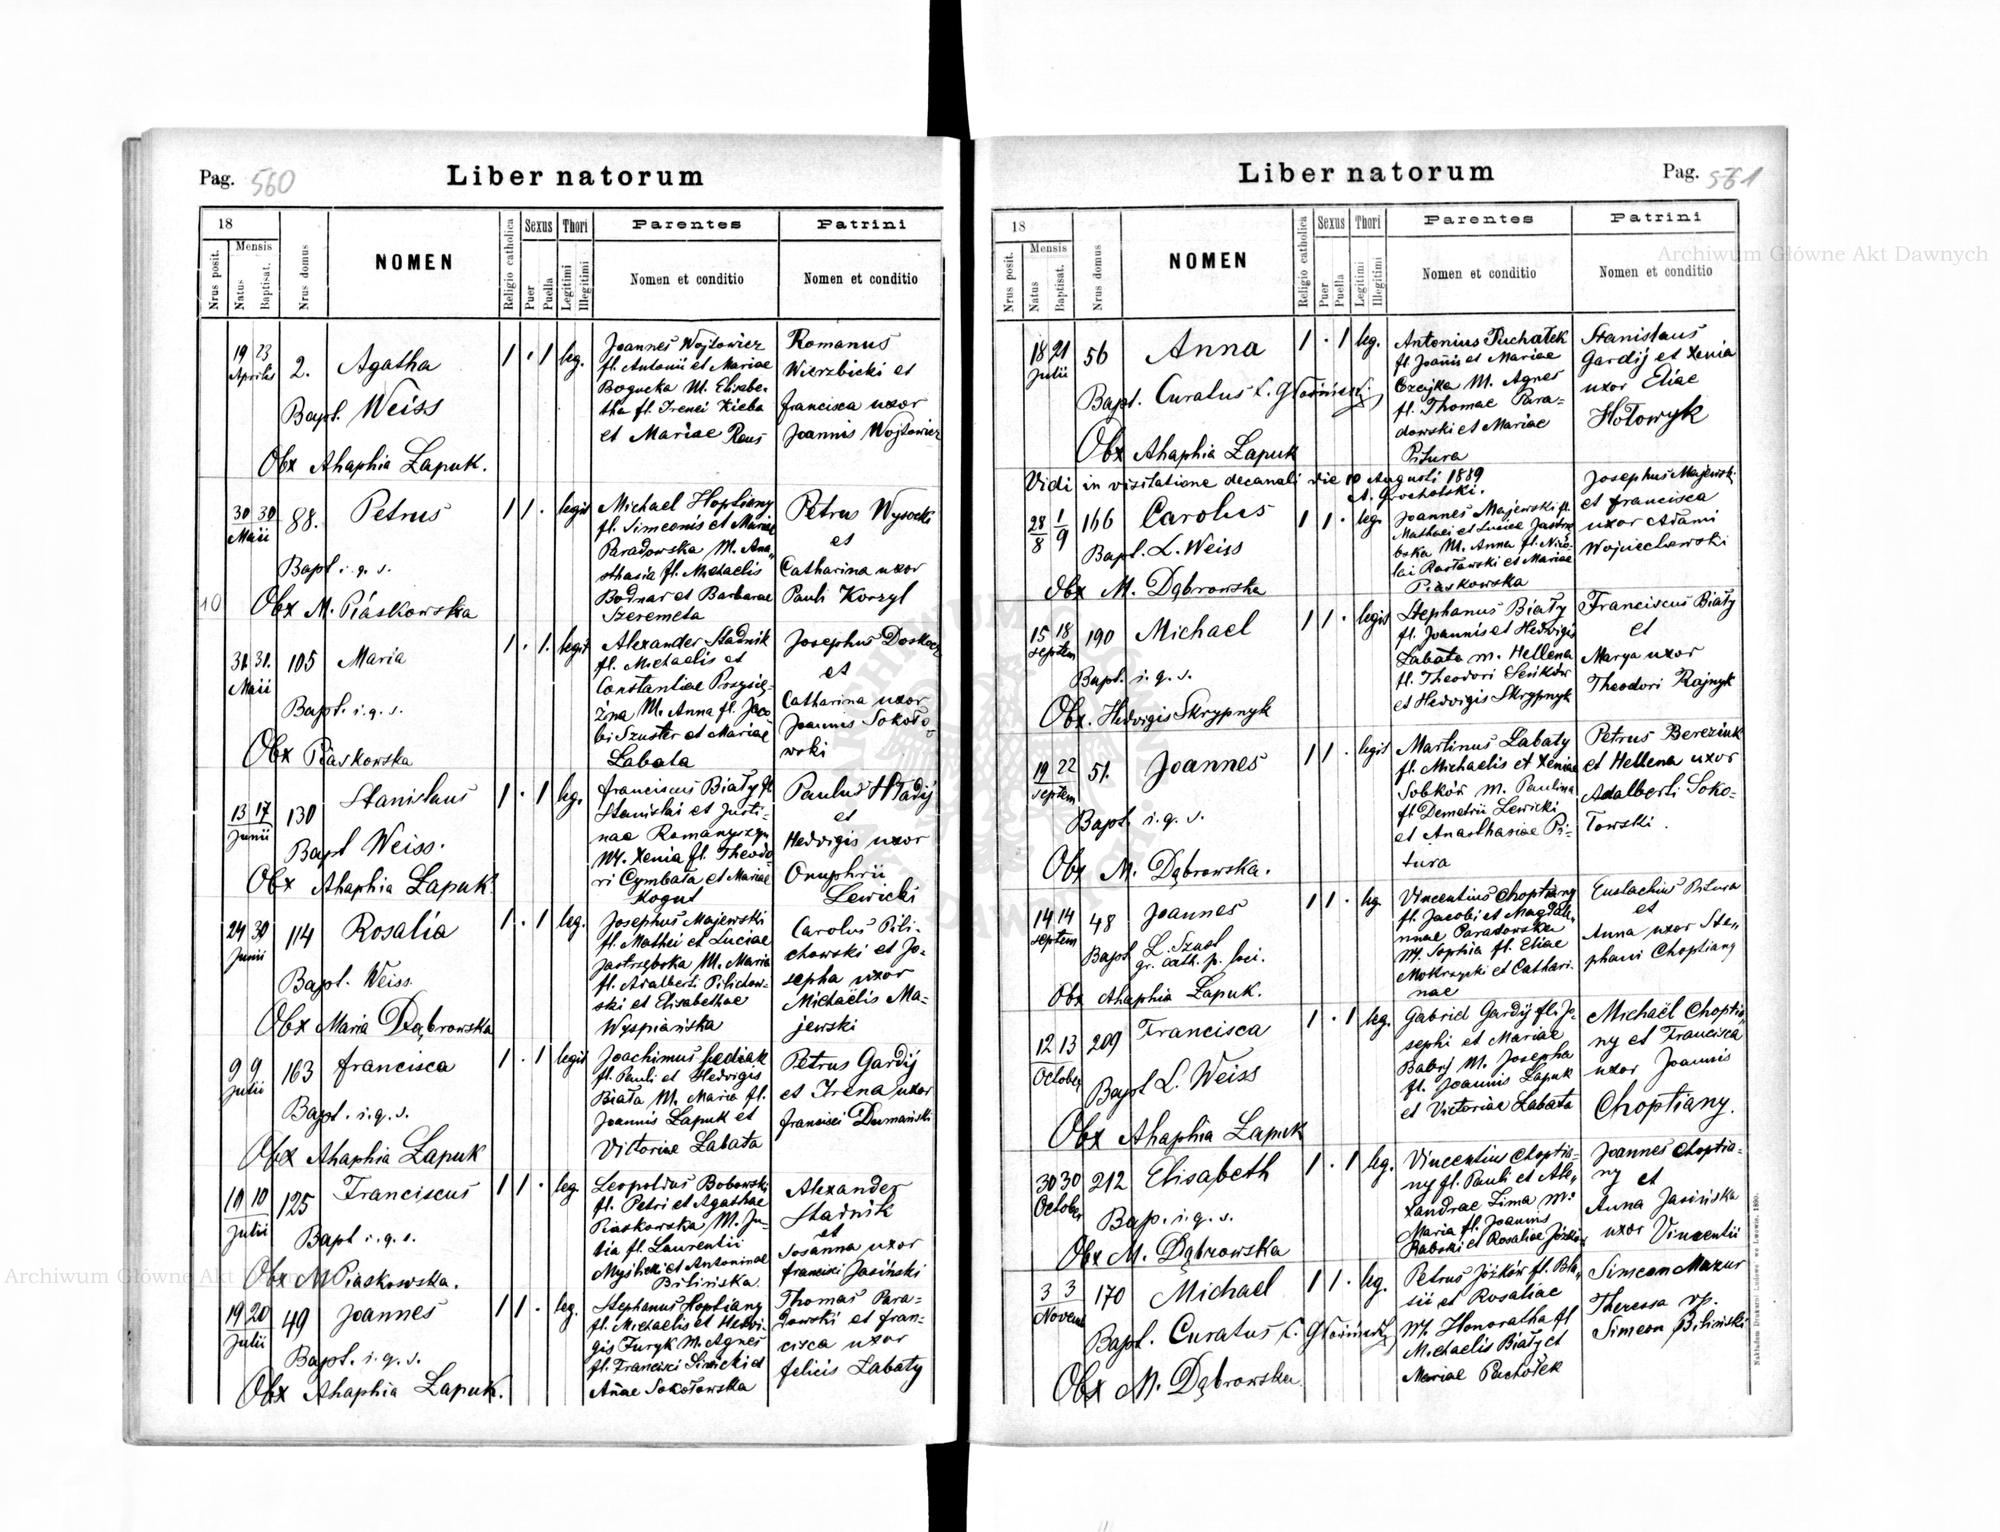 Pag. 560
Liber natorum
18
Nrus posit.
Mensis
Natus
Baptisat.
Nrus domus
NOMEN
Religio catholica
Sexus
Puer
Puella
Thori
Legitimi
Illegitimi
Parentes
Nomen et conditio
Patrini
Nomen et conditio
19 23
Aprilis
2.
Agatha
1 . 1 leg.
Bapt. Weiss
Obx Ahaphia Łapuk.
Joannes Wojtowicz
fl. Antonii et Mariae
Bogucka M. Elisabe-
tha fl. Irenei Kieba
et Mariae Reus
Romanus
Wierzbicki et
francisca uxor
Joannis Wojtowicz
30 30
Maii
88.
Petrus
1 1 . legit
Bapt i. q. s.
10
Obx M. Piaskowska
Michael Hoptiany
fl. Simeonis et Mariae
Paradowska M. Ana-
sthasia fl. Michaelis
Bodnar et Barbarae
Szeremeta
Petrus Wysocki
et
Catharina uxor
Pauli Korzyl
31. 31.
Maii
105
Maria
1 . 1. legit
Bapt. i. q. s.
Obx Piaskowska
Alexander Stadnik
fl. Michaelis et
Constantiae Przysię-
żna M. Anna fl. Jaco
bi Szuster et Mariae
Labata
Josephus
et
Catharina uxor
Joannis Sokoło
wski
13 17
Junii
130
Stanislaus
1 . 1 leg.
Bapt Weiss.
Obx Ahaphia Łapuk.
franciscus Biały fl
Stanislai et Justi-
nae Romanyszyn
M. Xenia fl. Theodo
ri Cymbała et Mariae
Kogut
Paulus Hładij
et
Hedvigis uxor
Onuphrii
Lewicki
24 30
Junii
114
Rosalia
1 . 1 leg.
Bapt. Weiss
Obx Maria Dąbrowska
Josephus Majewski
fl. Mathei et Luciae
Jastrzębska M. Maria
fl. Adalberti Pilichow-
ski et Elisabethae
Wyspiańska
Carolus Pili-
chowski et Jo-
sepha uxor
Michaëlis Ma-
jewski
9 9
Julii
163
francisca
1 . 1 legit
Bapt. i. q. s.
Obx Ahaphia Łapuk
Joachimus
fl. Pauli et Hedvigis
Biała M. Maria fl.
Joannis Łapuk et
Victoriae Labata
Petrus Gardij
et Irena uxor
francisci Dumański
10 10
Julii
125
Franciscus
1 1 . leg.
Bapt i. q. s.
Obx M Piaskowska.
Leopoldus Bobowski
fl. Petri et Agathae
Piaskowska M. Ju-
lia fl. Laurentii
et Antoninae
Bilińska.
Alexander
Stadnik
et
Sosanna uxor
francisci Jasiński
19 20
Julii
49
Joannes
1 1 . leg.
Bapt. i. q. s.
Obx Ahaphia Łapuk.
Stephanus Hoptiany
fl. Michaelis et Hedvi-
gis Furyk M. Agnes
fl. Francisci et
Añae Sokołowska
Thomas Para-
dowski et fran-
cisca uxor
felicis Labaty
Liber natorum
Pag. 561
18
Nrus posit.
Mensis
Natus
Baptisat.
Nrus domus
NOMEN
Religio catholica
Sexus
Puer
Puella
Thori
Legitimi
Illegitimi
Parentes
Nomen et conditio
Patrini
Nomen et conditio
18 21
Julii
56
Anna
1 . 1 leg.
Bapt. Curatus
Obx Ahaphia Łapuk
Antonius Puchałek
fl. Joañis et Mariae
Czejka M. Agnes
fl. Thomae Para-
dowski et Mariae
Pitura
Stanislaus
Gardij et Xenia
uxor Eliae
Hołowyk
Vidi in visitatione decanali die 10 Augusti 1889
28/8 1/9
166
Carolus
1 1 . leg.
Bapt. L. Weiss
Obx M. Dąbrowska
Joannes Majewski fl.
Mathaei et Luciae Jastrzę
bska M. Anna fl. Nico-
lai Rosławski et Mariae
Piaskowska
Josephus Majewski
et francisca
uxor Adami
Wojciechowski
15 18
septem
190
Michael
1 1 . legit
Bapt. i. q. s.
Obx. Hedvigis Skrypnyk
Stephanus Biały
fl. Joannis et Hedvigis
Labata m. Hellena
fl. Theodori Seńków
et Hedvigis Skrypnyk
Franciscus Biały
et
Marya uxor
Theodori Rajnyk
19 22
septem
51.
Joannes
1 1 . legit
Bapt. i. q. s.
Obx M. Dąbrowska.
Martinus Labaty
fl. Michaelis et Xeniae
Sobków m. Paulina
fl Demetrii Lewicki
et Anasthasiae Pi-
tura
Petrus Bereziuk
et Hellena uxor
Adalberti Soko-
łowski.
14 14
septem
48
Joannes
1 1 . leg.
Bapt
gr. cath. p. loci.
Obx Ahaphia Łapuk.
Vincentius Choptiany
fl. Jacobi et Magdale-
nnae Paradowska
M. Sophia fl. Eliae
Mokrzycki et Cathari-
nae
Eustachius Pitura
et
Anna uxor Ste-
phani Choptiany
12 13
October
209
Francisca
1 . 1 leg.
Bapt L. Weiss
Obx Ahaphia Łapuk
Gabriel Gardÿ fl. Jo-
sephi et Mariae
Babij M. Josepha
fl. Joannis Łapuk
et Victoriae Labata
Michaël Choptia-
ny et Francisca
uxor Joannis
Choptiany.
30 30
October
212
Elisabeth
1 . 1 leg.
Bap. i. q. s.
Obx M. Dąbrowska
Vincentius Choptia-
ny fl. Pauli et Ale-
xandrae Zima M.
Maria fl. Joannis
Rabski et Rosaliae
Joannes Choptia-
ny et
Anna Jasińska
uxor Vincentii
3 3
Novem
170
Michael
1 1 . leg.
Bapt. Curatus
Obx M. Dąbrowska.
Petrus Józków fl. Bla-
sii et Rosaliae
M. Honoratha fl
Michaelis Biały et
Mariae Puchółek
Simeon Mazur
Theressa
Simeon Biliński
Nakładem Drukarni Ludowej we Lwowie. 1880.
Archiwum Główne Akt Dawnych
Archiwum Główne Akt Dawnych